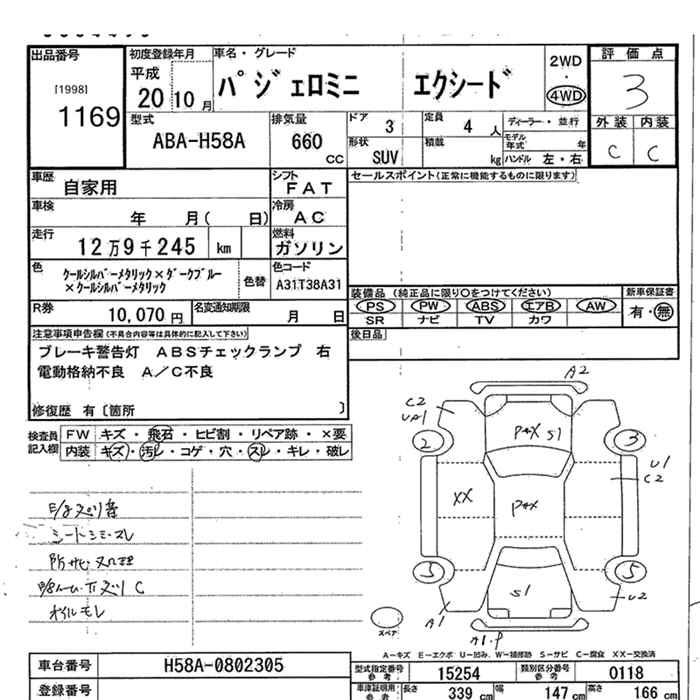 出品番号
[1998]
1169
初度登録年月
平成
20 10 月
車名・グレード
パジェロミニ エクシード
2WD
・
4WD
評価点
3
外装 内装
C C
型式
ABA-H58A
排気量
660
CC
ドア
3
形状
SUV
定員
4 人
積載
kg
ディーラー・並行
モデル年式 年
ハンドル 左・右
車歴
自家用
シフト
FAT
車検
年 月( 日)
冷房
AC
走行
12万9千245 km
燃料
ガソリン
色
クールシルバーメタリック×ダークブルー
×クールシルバーメタリック
色替
色コード
A31T38A31
R券
10,070 円
名変通知期限
月 日
セールスポイント(正常に機能するものに限ります)
装備品 (純正品に限り○をつけてください)
PS PW ABS エアB AW
SR ナビ TV カワ
新車保証書
有・無
後日品
注意事項申告欄(不具合内容等は具体的に記入して下さい)
ブレーキ警告灯 ABSチェックランプ 右
電動格納不良 A/C不良
修復歴 有〔箇所 〕
検査員
記入欄
FW キズ・飛石・ヒビ割・リペア跡・×要
内装 キズ・汚レ・コゲ・穴・スレ・キレ・破レ
シートシミ・スレ
オイルモレ
A2
C2
P4X S1
2
3
U1
C2
XX
P4X
5
5
S1
U2
A1
スペア
A−キズ E−エクボ U−凹み、W−補修跡 S−サビ C−腐食 XX−交換済
車台番号
H58A-0802305
登録番号
型式指定番号
参考
15254
類別区分番号
参考
0118
車庫証明用
参考
長さ
339 cm
幅
147 cm
高さ
166 cm